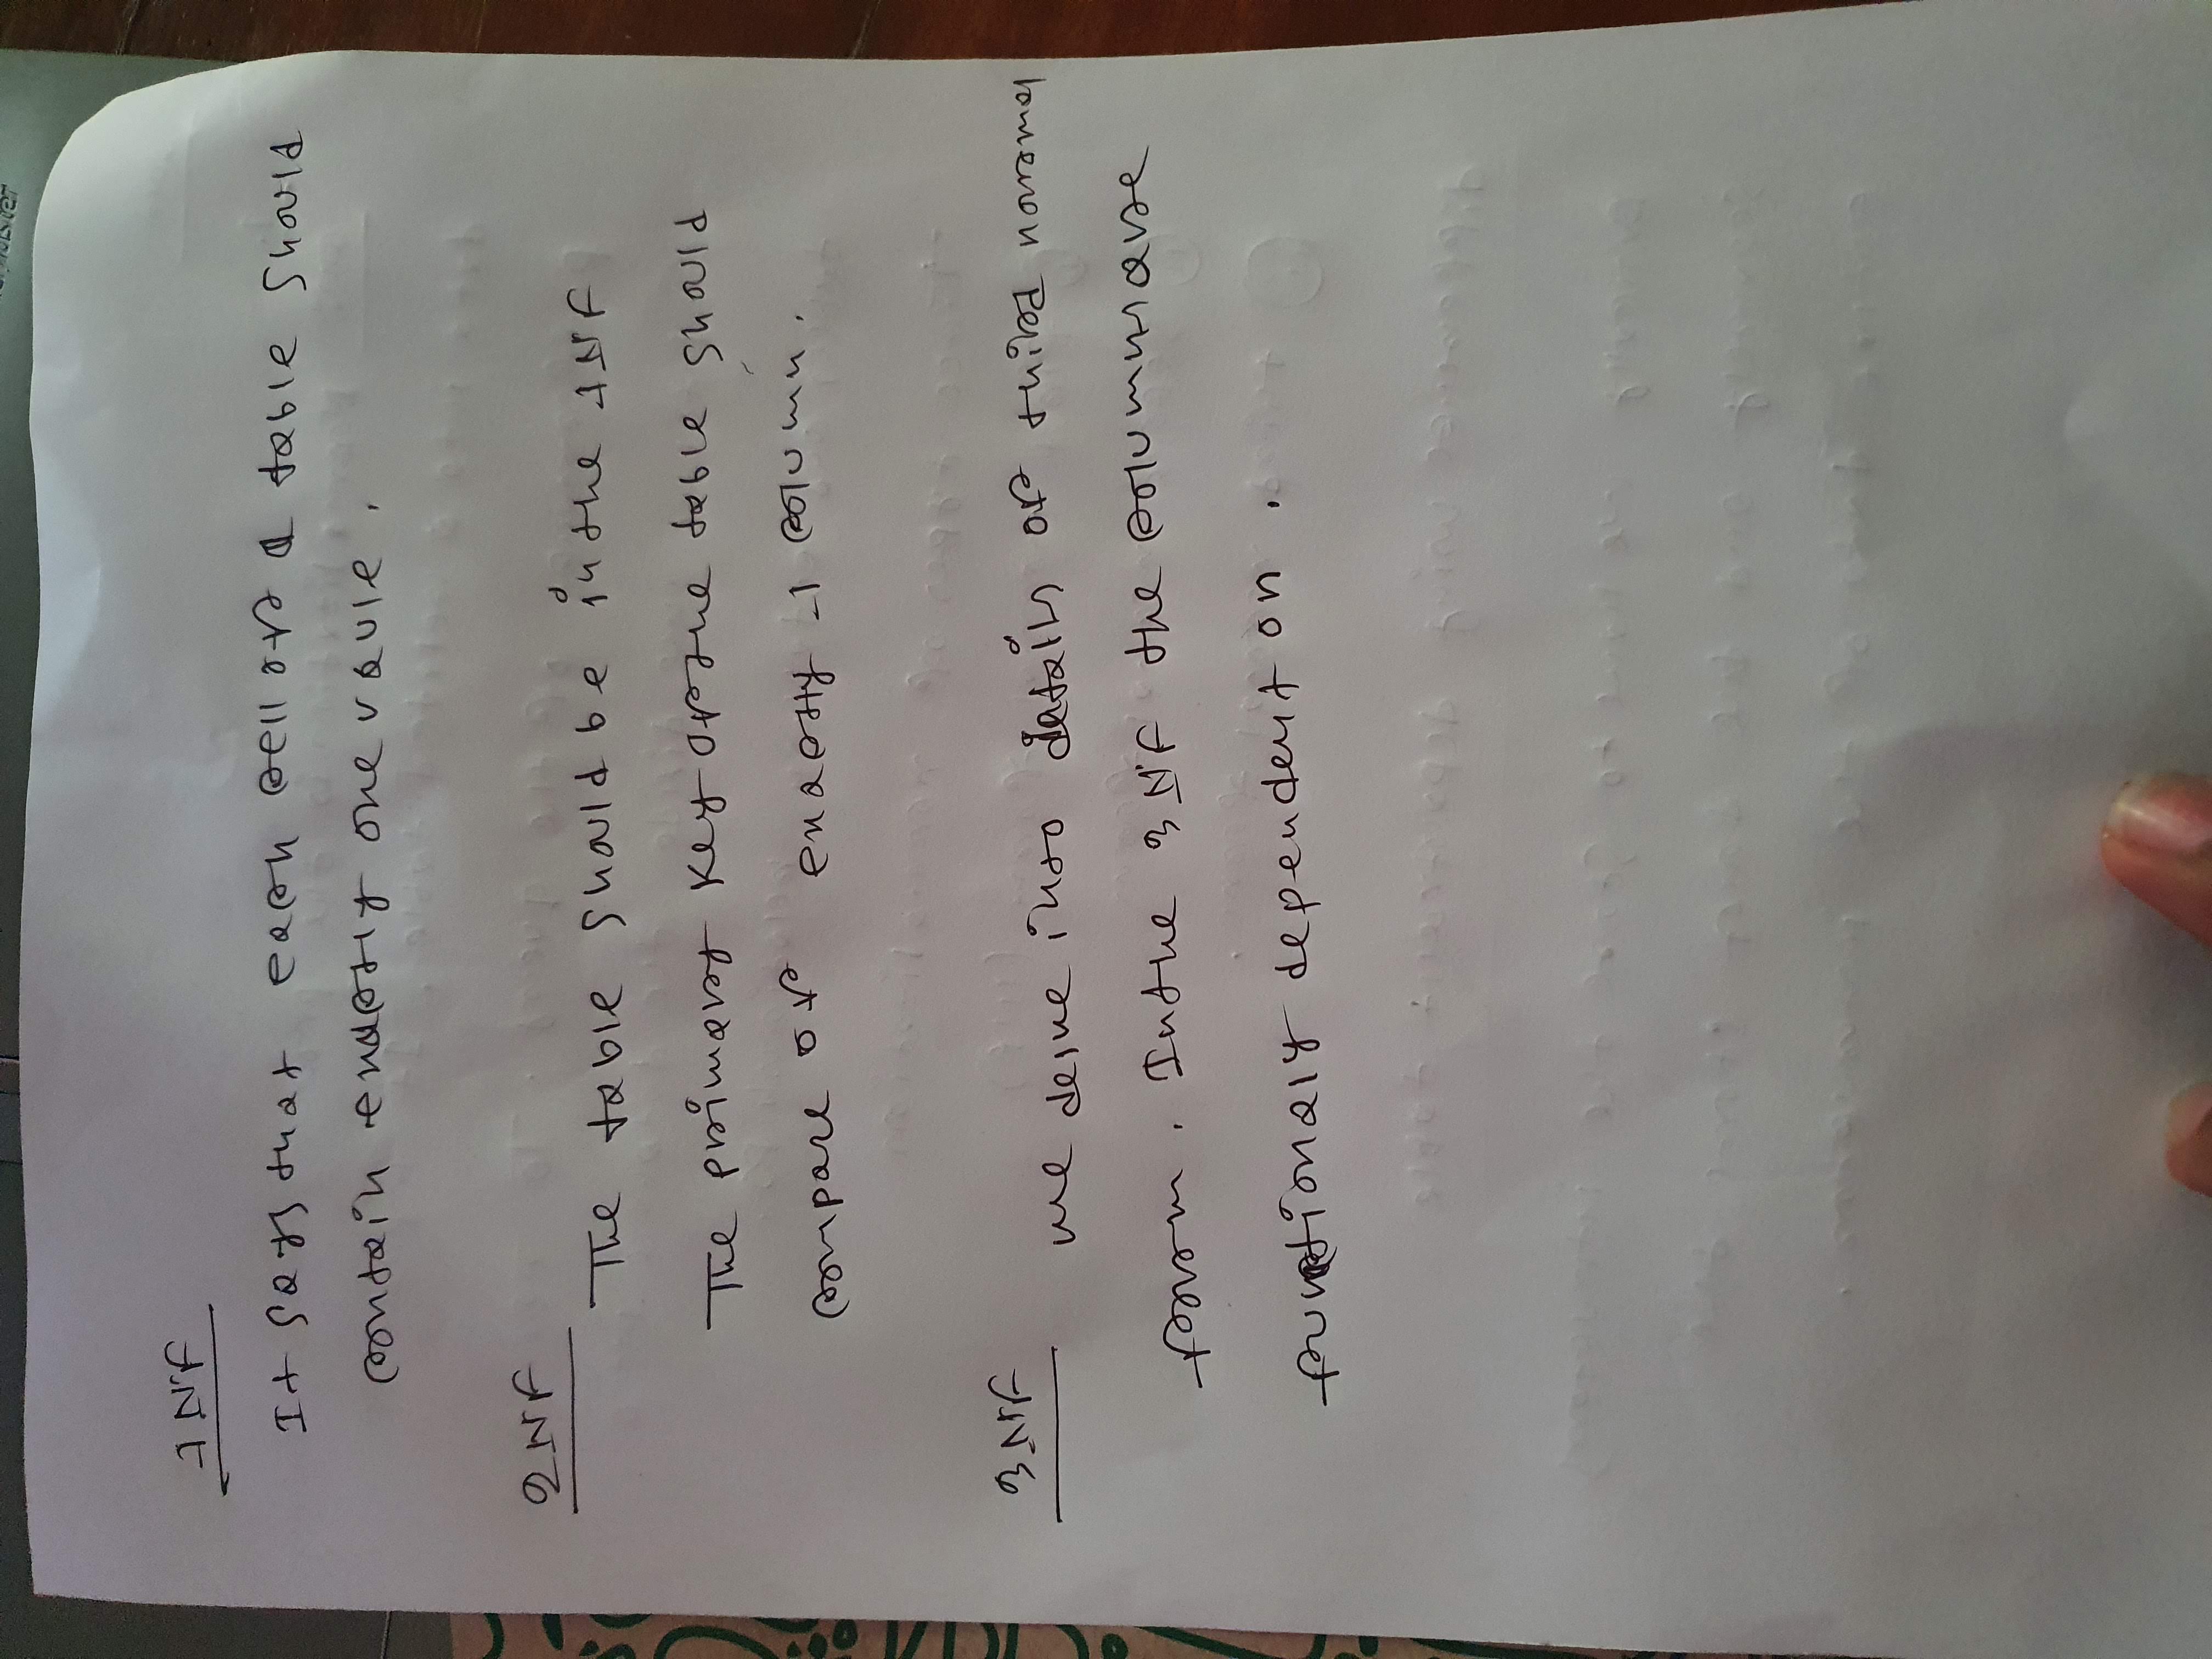 1NF
It says that each cell of a table should
contain exactly one vaule.
2NF
The table should be in the 1NF
The primary key of the table should
compare of exactly 1 column.
3NF
we delve into details of third normal
form. In the 3NF the columns are
functionaly dependent on.